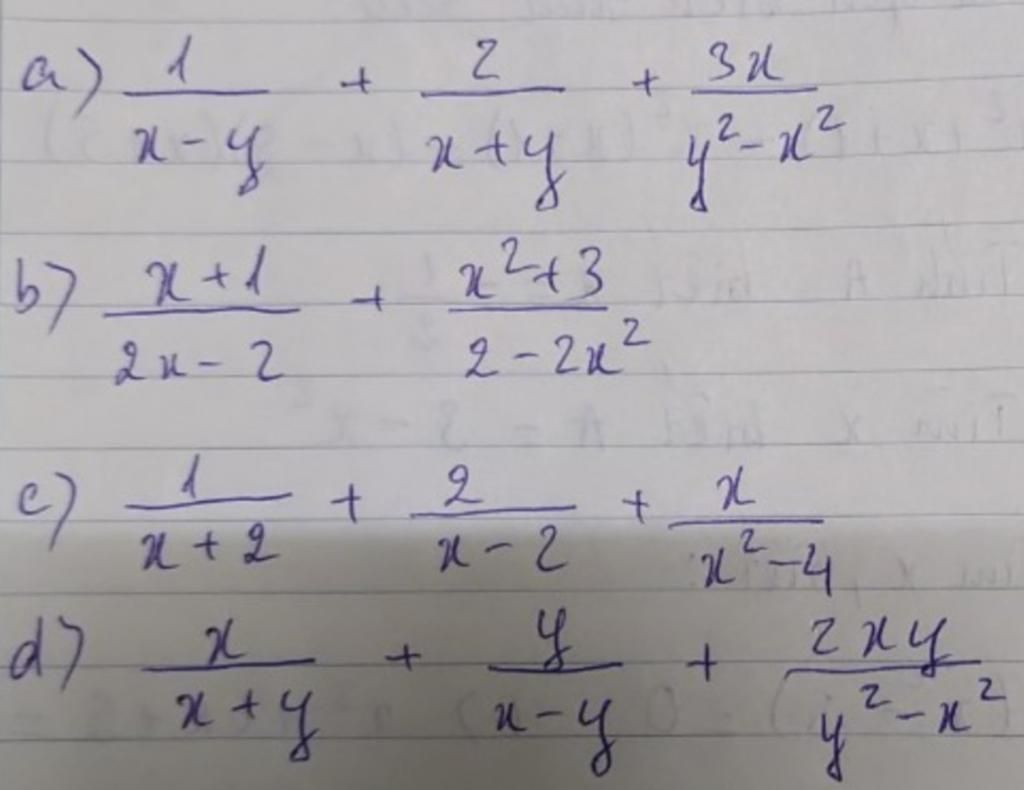 a) \frac{1}{x-y} + \frac{2}{x+y} + \frac{3x}{y^2-x^2}
b) \frac{x+1}{2x-2} + \frac{x^2+3}{2-2x^2}
c) \frac{1}{x+2} + \frac{2}{x-2} + \frac{x}{x^2-4}
d) \frac{x}{x+y} + \frac{y}{x-y} + \frac{2xy}{y^2-x^2}